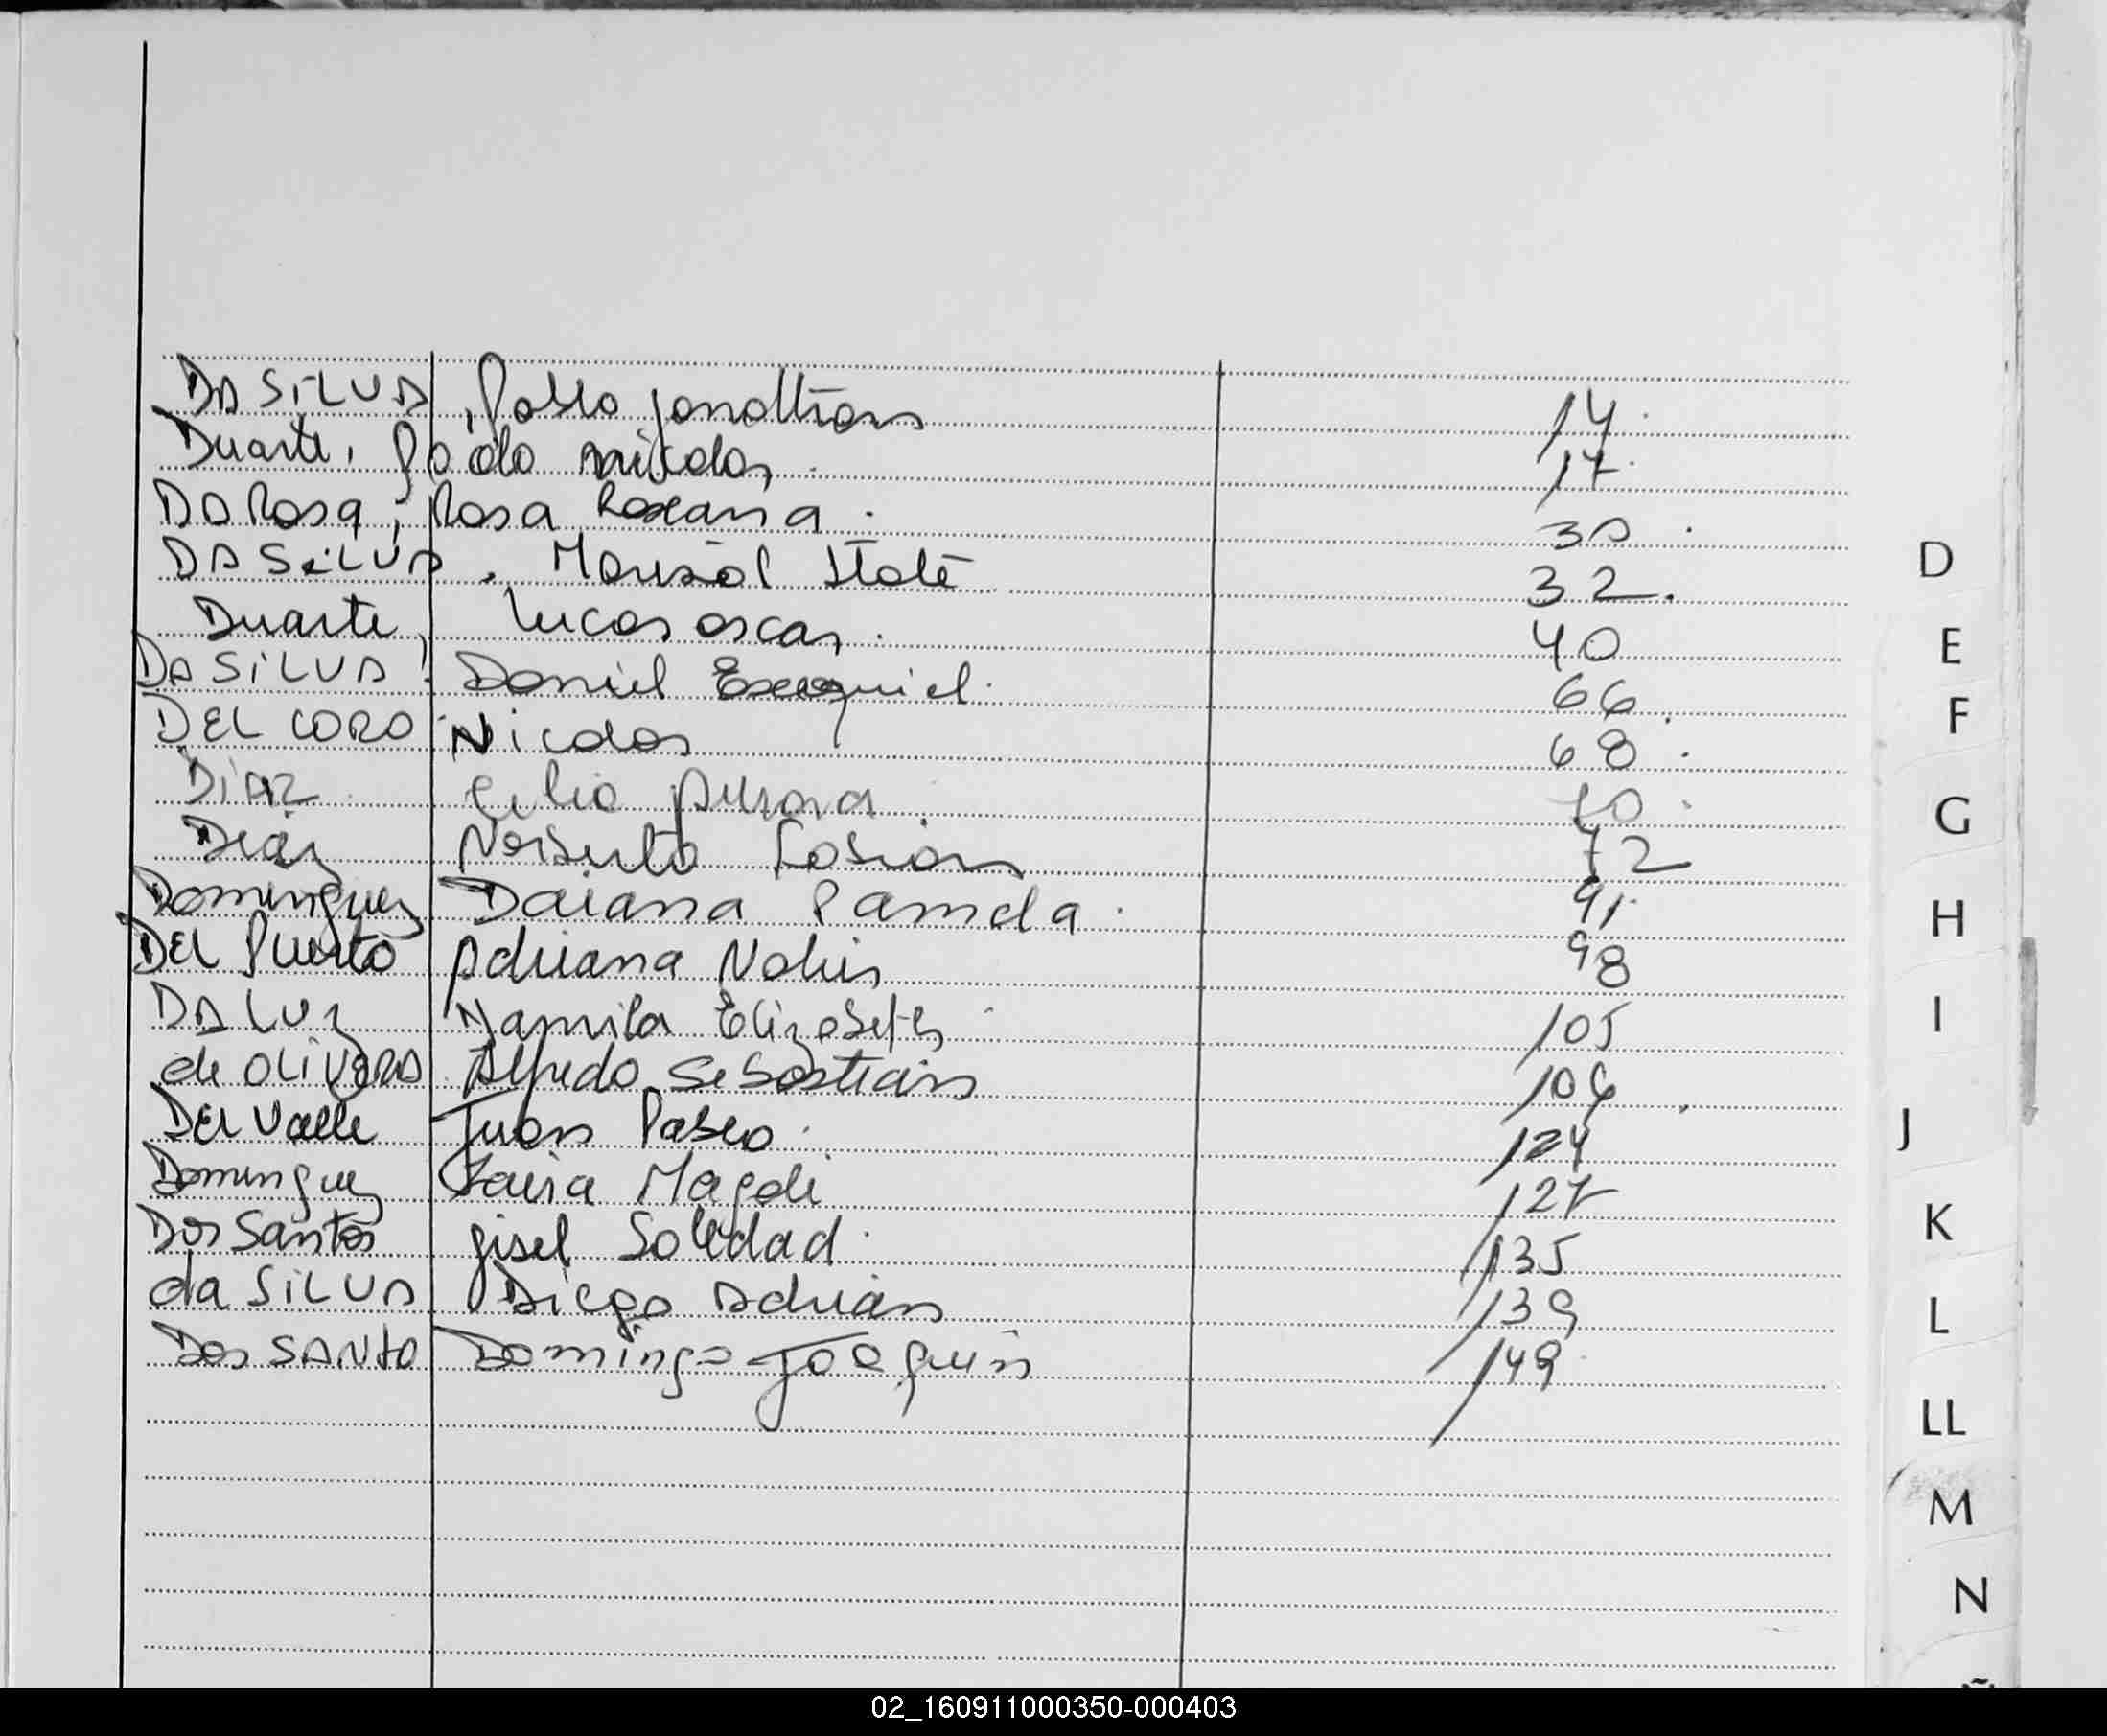 DA SILVA, Pablo Jonathan 14.
Duarte, Paolo Nicolas. 17.
DA Rosa, Rosa Roxana. 30.
DA SILVA, Marisol Itatí 32.
Duarte, Lucas Oscar. 40
DA SILVA, Daniel Exequiel. 66.
DEL CORO Nicolas 68.
DIAZ Celia Aurora 70.
Diaz Norberto Fabian 72
Dominguez Daiana Pamela. 91.
DEL Puerto Adriana 98
DA Luz Yamila Elizabeth 105
de OLIVERA Alfredo Sebastian 106.
DEL Valle Juan Pablo. 124
Dominguez Magali 127
Dos Santos Gisel Soledad. 135
da SILVA Diego Adrian 139
Dos SANTO Domingo Joaquin 149.
D
E
F
G
H
I
J
K
L
LL
M
N
02_160911000350-000403